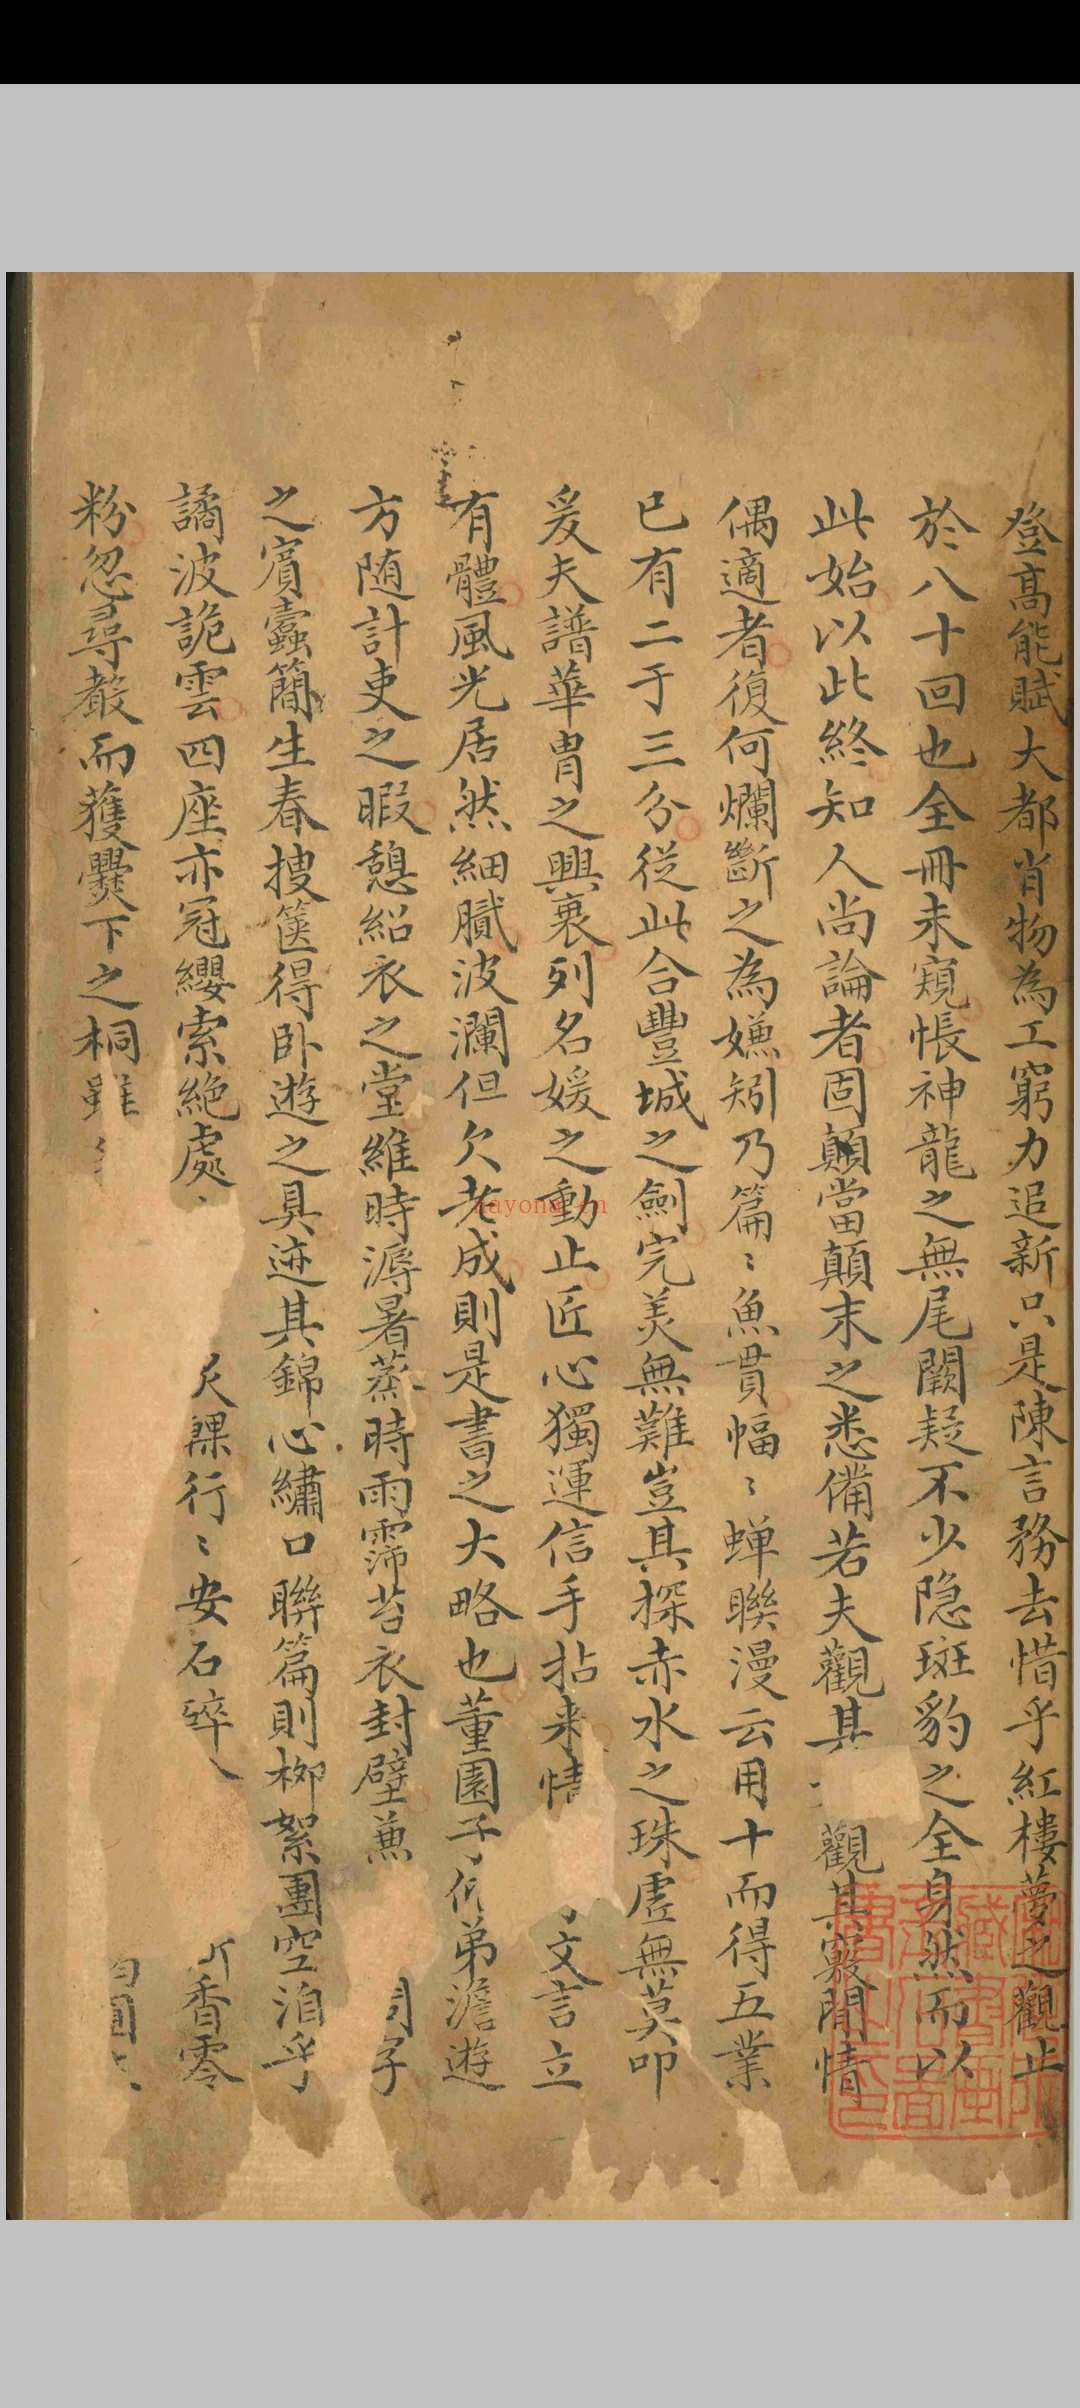 登高能賦大都肖物為工窮力追新只是陳言務去惜乎紅樓夢之觀止
於八十回也全冊未窺悵神龍之無尾闕疑不少隐斑豹之全身然而以
此始以此終知人尚論者固顛當顛末之悉備若夫觀其觀其竅閒情
偶適者復何爛斷之為嫌矧乃篇〻魚貫幅〻蝉聯漫云用十而得五業
已有二于三分從此合豐城之劍完羙無難豈其探赤水之珠虗無莫叩
爰夫譜華胄之興衰列名媛之動止匠心獨運信手拈来情文言立
有體風光居然細膩波瀾但欠老成則是書之大略也董園子何弟澹遊
方随計吏之暇憩紹衣之堂維時溽暑蒸時雨霈苔衣封壁兼
之賓蠹簡生春搜篋得卧遊之具迹其錦心繡口聯篇則柳絮團空洎乎
譎波詭雲四座亦冠纓索絶處
行〻安石碎香零
粉忽尋聲而獲爨下之桐雖
nayona.cn